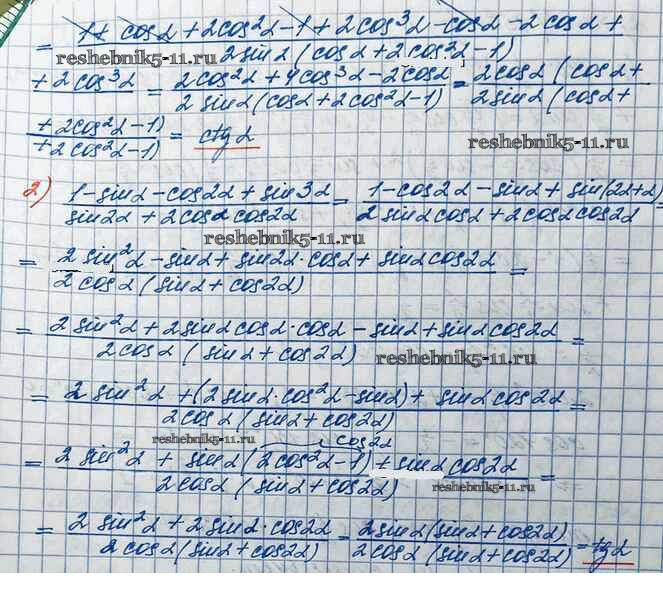 = (1 + cosα + 2cos²α - 1 + 2cos³α - cosα - 2cosα +)/(2sinα(cosα + 2cos²α - 1))
reshebnik5-11.ru
(+ 2cos³α) = (2cos²α + 4cos³α - 2cosα)/(2sinα(cosα + 2cos²α - 1)) = (2cosα(cosα +)/(2sinα(cosα +)
(+ 2cos²α - 1))/(+ 2cos²α - 1)) = ctgα
reshebnik5-11.ru
2) (1 - sinα - cos2α + sin3α)/(sin2α + 2cosα cos2α) = (1 - cos2α - sinα + sin(2α + α))/(2sinα cosα + 2cosα cos2α) =
reshebnik5-11.ru
= (2sin²α - sinα + sin2α · cosα + sinα cos2α)/(2cosα(sinα + cos2α)) =
= (2sin²α + 2sinα cosα · cosα - sinα + sinα cos2α)/(2cosα(sinα + cos2α)) =
reshebnik5-11.ru
= (2sin²α + (2sinα · cos²α - sinα) + sinα cos2α)/(2cosα(sinα + cos2α)) =
reshebnik5-11.ru
cos2α
= (2sin²α + sinα(2cos²α - 1) + sinα cos2α)/(2cosα(sinα + cos2α)) =
reshebnik5-11.ru
= (2sin²α + 2sinα · cos2α)/(2cosα(sinα + cos2α)) = (2sinα(sinα + cos2α))/(2cosα(sinα + cos2α)) = tgα